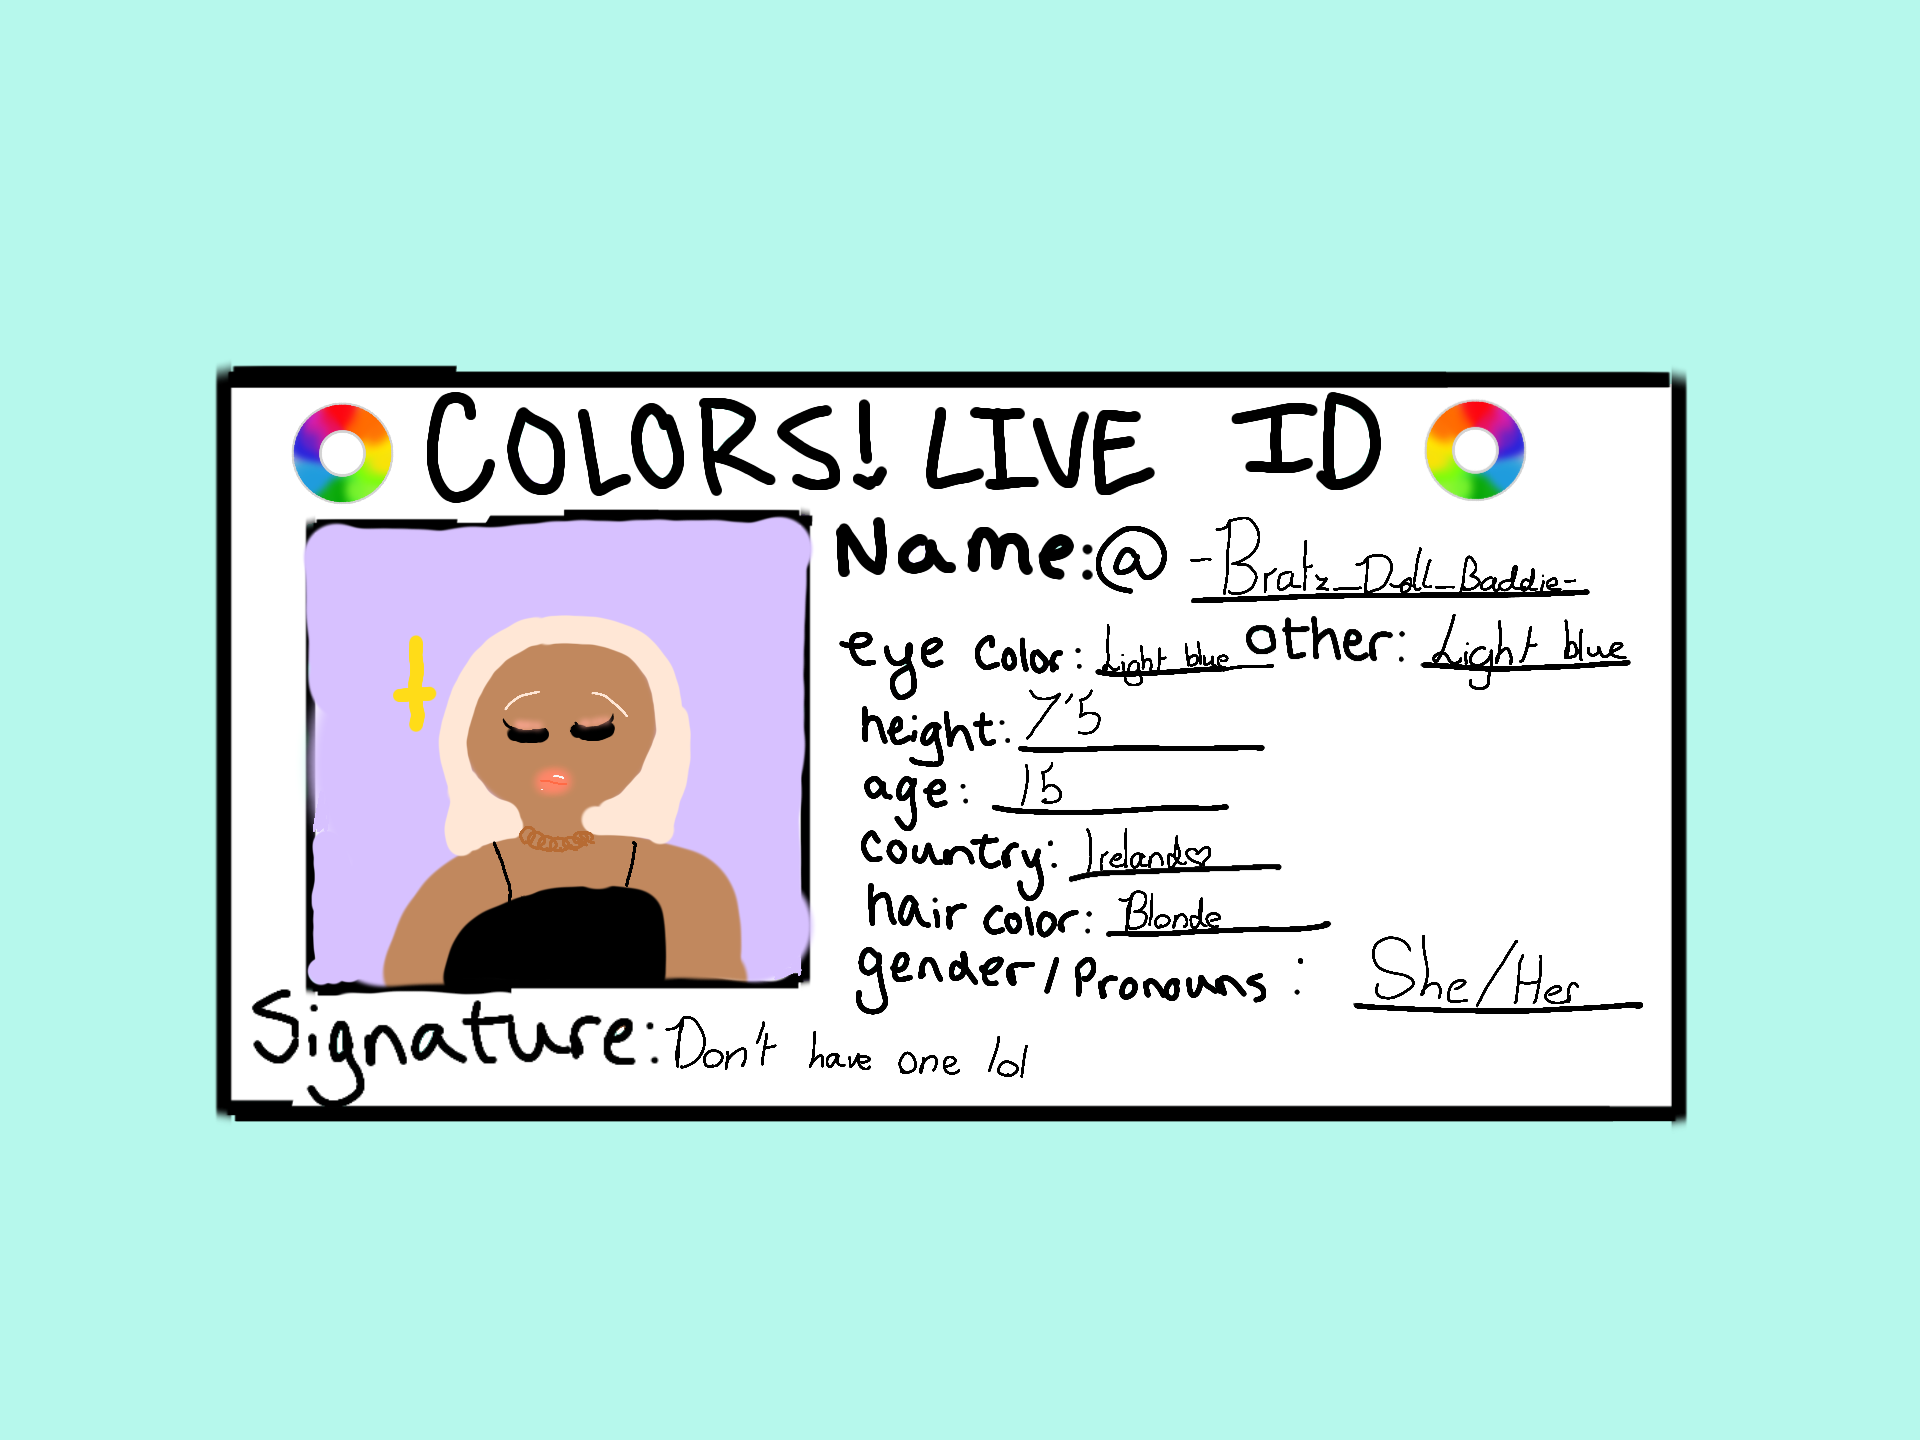 COLORS! LIVE ID
Name:@ -Bratz_Doll_Baddie-
eye color: Light blue other: Light blue
height: 7'5
age: 15
country: Ireland♡
hair color: Blonde
gender/Pronouns : She/Her
Signature: Don't have one lol